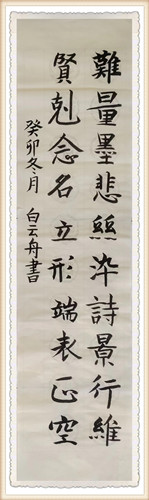 難量墨悲絲染詩景行維
賢剋念名立形端表正空
癸卯冬月 白云舟書